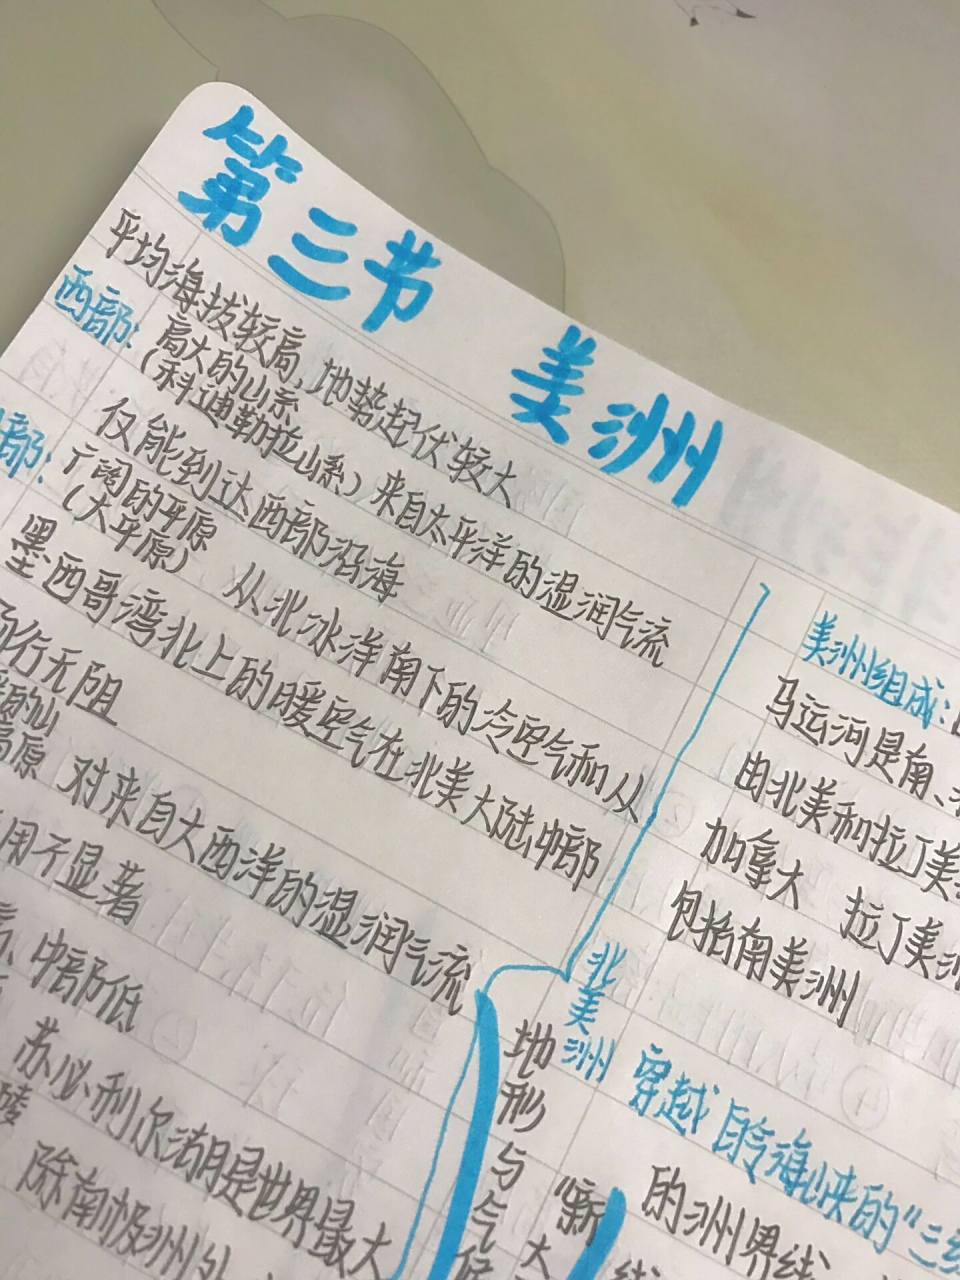 第三节 美洲
平均海拔较高,地势起伏较大
西部:高大的山系
(科迪勒拉山系)来自太平洋的湿润气流
仅能到达西部沿海
部:广阔的平原
(大平原)从北冰洋南下的冷空气和从
墨西哥湾北上的暖空气在北美大陆中部
行无阻
的山
高原 对来自大西洋的湿润气流
用不显著
中部低
苏必利尔湖是世界最大
除南极洲外
美洲组成:
马运河是南、
由北美和拉丁美
加拿大 拉丁美洲
包括南美洲
北美洲
地形与气候
穿越白令海峡的“三
的洲界线
“新大